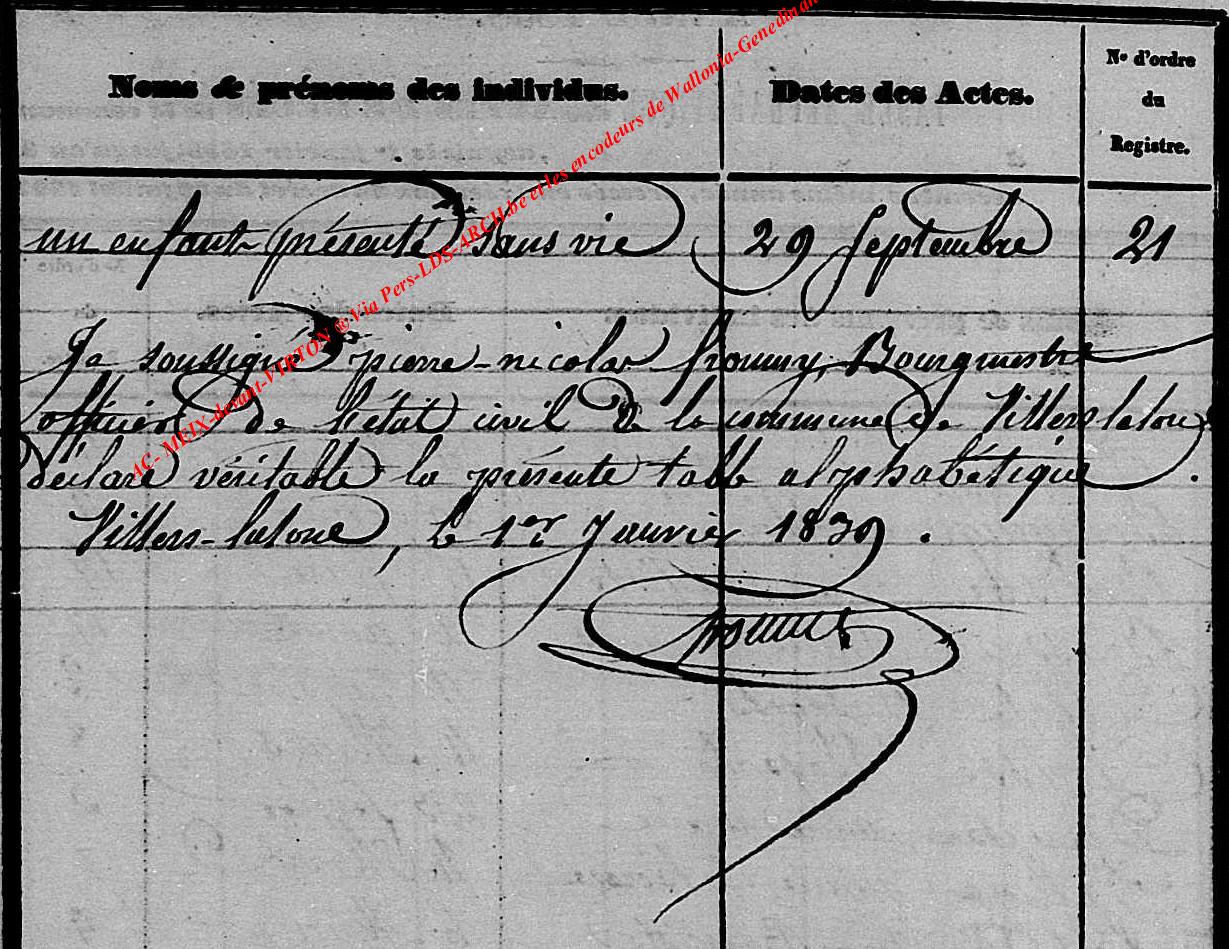 Noms & prénoms des individus. Dates des Actes. Nos d'ordre
du
Registre.
un enfant présenté sans vie 29 Septembre 21
Je soussigné pierre-nicolas Bourgmestre
officier de l'état civil de la commune de Villers laloue
déclare véritable la présente table alphabétique.
Villers-laloue, le 1er Janvier 1839.
AC- MEIX-devant-VIRTON ® Via Pers-LDS-ARCH.be et les encodeurs de Wallonia-Genedinan